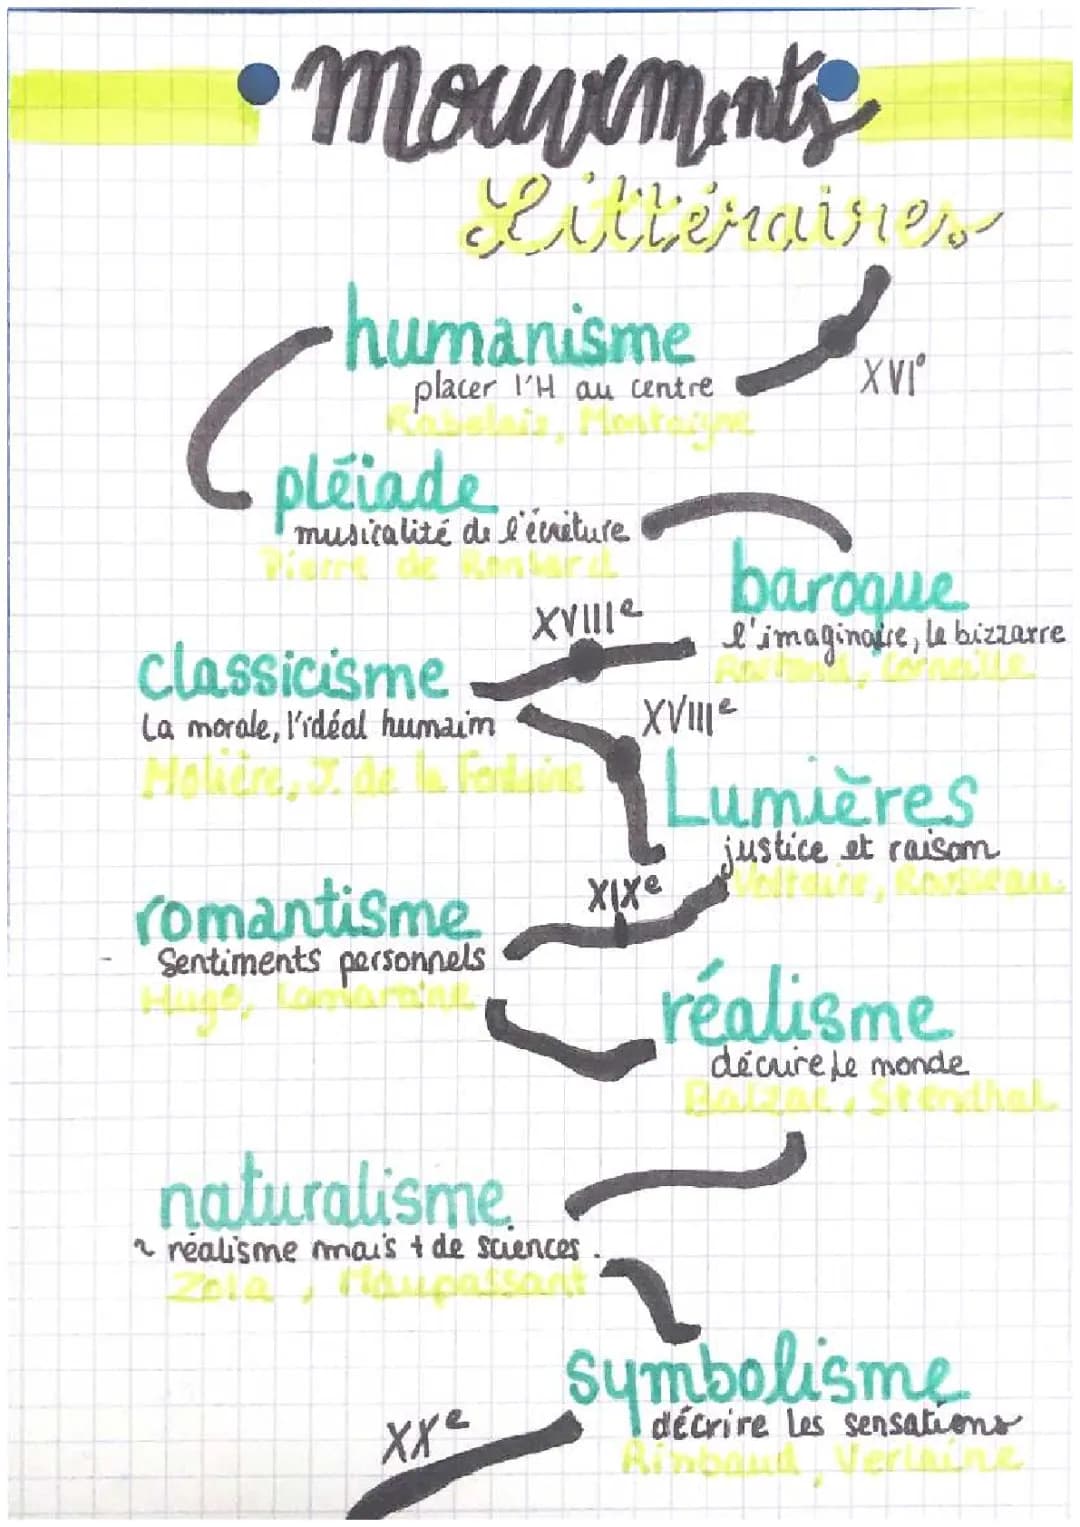 Mouvements
Littéraires
humanisme
placer l'H au centre
XVI°
Rabelais, Montaigne
pléiade
musicalité de l'écriture
Pierre de Ronsard
baroque
l'imaginaire, le bizzarre
Rostand, Corneille
XVIIIe
classicisme
la morale, l'idéal humain
Molière, J. de la Fontaine
XVIIIe
Lumières
justice et raison
Voltaire, Rousseau
XIXe
romantisme
Sentiments personnels
Hugo, Lamartine
réalisme
décrire le monde
Balzac, Stendhal
naturalisme
~ réalisme mais + de sciences.
Zola, Maupassant
symbolisme
décrire les sensations
Rimbaud, Verlaine
XXe